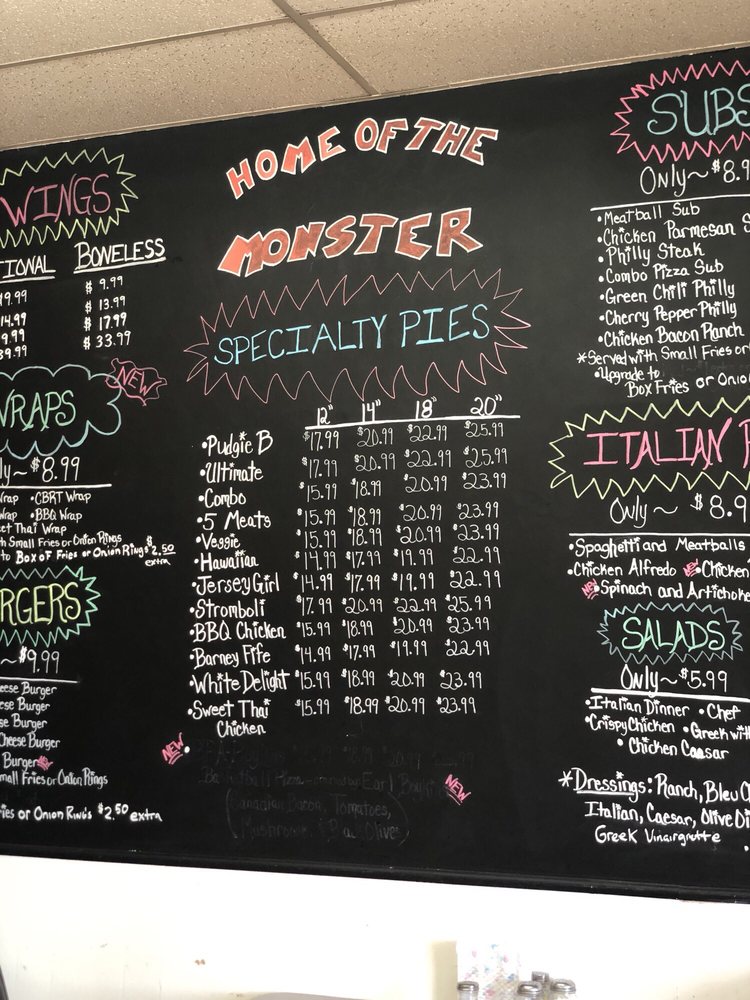 HOME OF THE
MONSTER
SPECIALTY PIES
12" 14" 18" 20"
•Pudgie B $17.99 $20.99 $22.99 $25.99
•Ultimate $17.99 $20.99 $22.99 $25.99
•Combo $15.99 $18.99 $20.99 $23.99
•5 Meats $15.99 $18.99 $20.99 $23.99
•Veggie $15.99 $18.99 $20.99 $23.99
•Hawaiian $14.99 $17.99 $19.99 $22.99
•Jersey Girl $14.99 $17.99 $19.99 $22.99
•Stromboli $17.99 $20.99 $22.99 $25.99
•BBQ Chicken $15.99 $18.99 $20.99 $23.99
•Barney Fife $14.99 $17.99 $19.99 $22.99
•White Delight $15.99 $18.99 $20.99 $23.99
•Sweet Thai $15.99 $18.99 $20.99 $23.99
Chicken
NEW
NEW
Canadian Bacon, Tomatoes,
WINGS
TIONAL BONELESS
$ 9.99
$ 13.99
$ 17.99
$ 33.99
NEW
WRAPS
~ $8.99
Wrap •CBRT Wrap
Wrap •BBQ Wrap
Thai Wrap
Small Fries or Onion Rings
to Box of Fries or Onion Rings $2.50
extra
RGERS
~$9.99
Cheese Burger
Burger
Small Fries or Onion Rings
Fries or Onion Rings $2.50 extra
SUBS
Only~ $8.9
•Meatball Sub
•Chicken Parmesan S
•Philly Steak
•Combo Pizza Sub
•Green Chili Philly
•Cherry Pepper Philly
•Chicken Bacon Ranch
*Served with Small Fries or
•Upgrade to
Box Fries or Onion
ITALIAN
Only ~ $8.9
•Spaghetti and Meatballs
•Chicken Alfredo NEW •Chicken
NEW •Spinach and Artichoke
SALADS
Only~$5.99
•Italian Dinner •Chef
•Crispy Chicken •Greek with
•Chicken Caesar
*Dressings: Ranch, Bleu C
Italian, Caesar, Olive Oi
Greek Vinairgrette